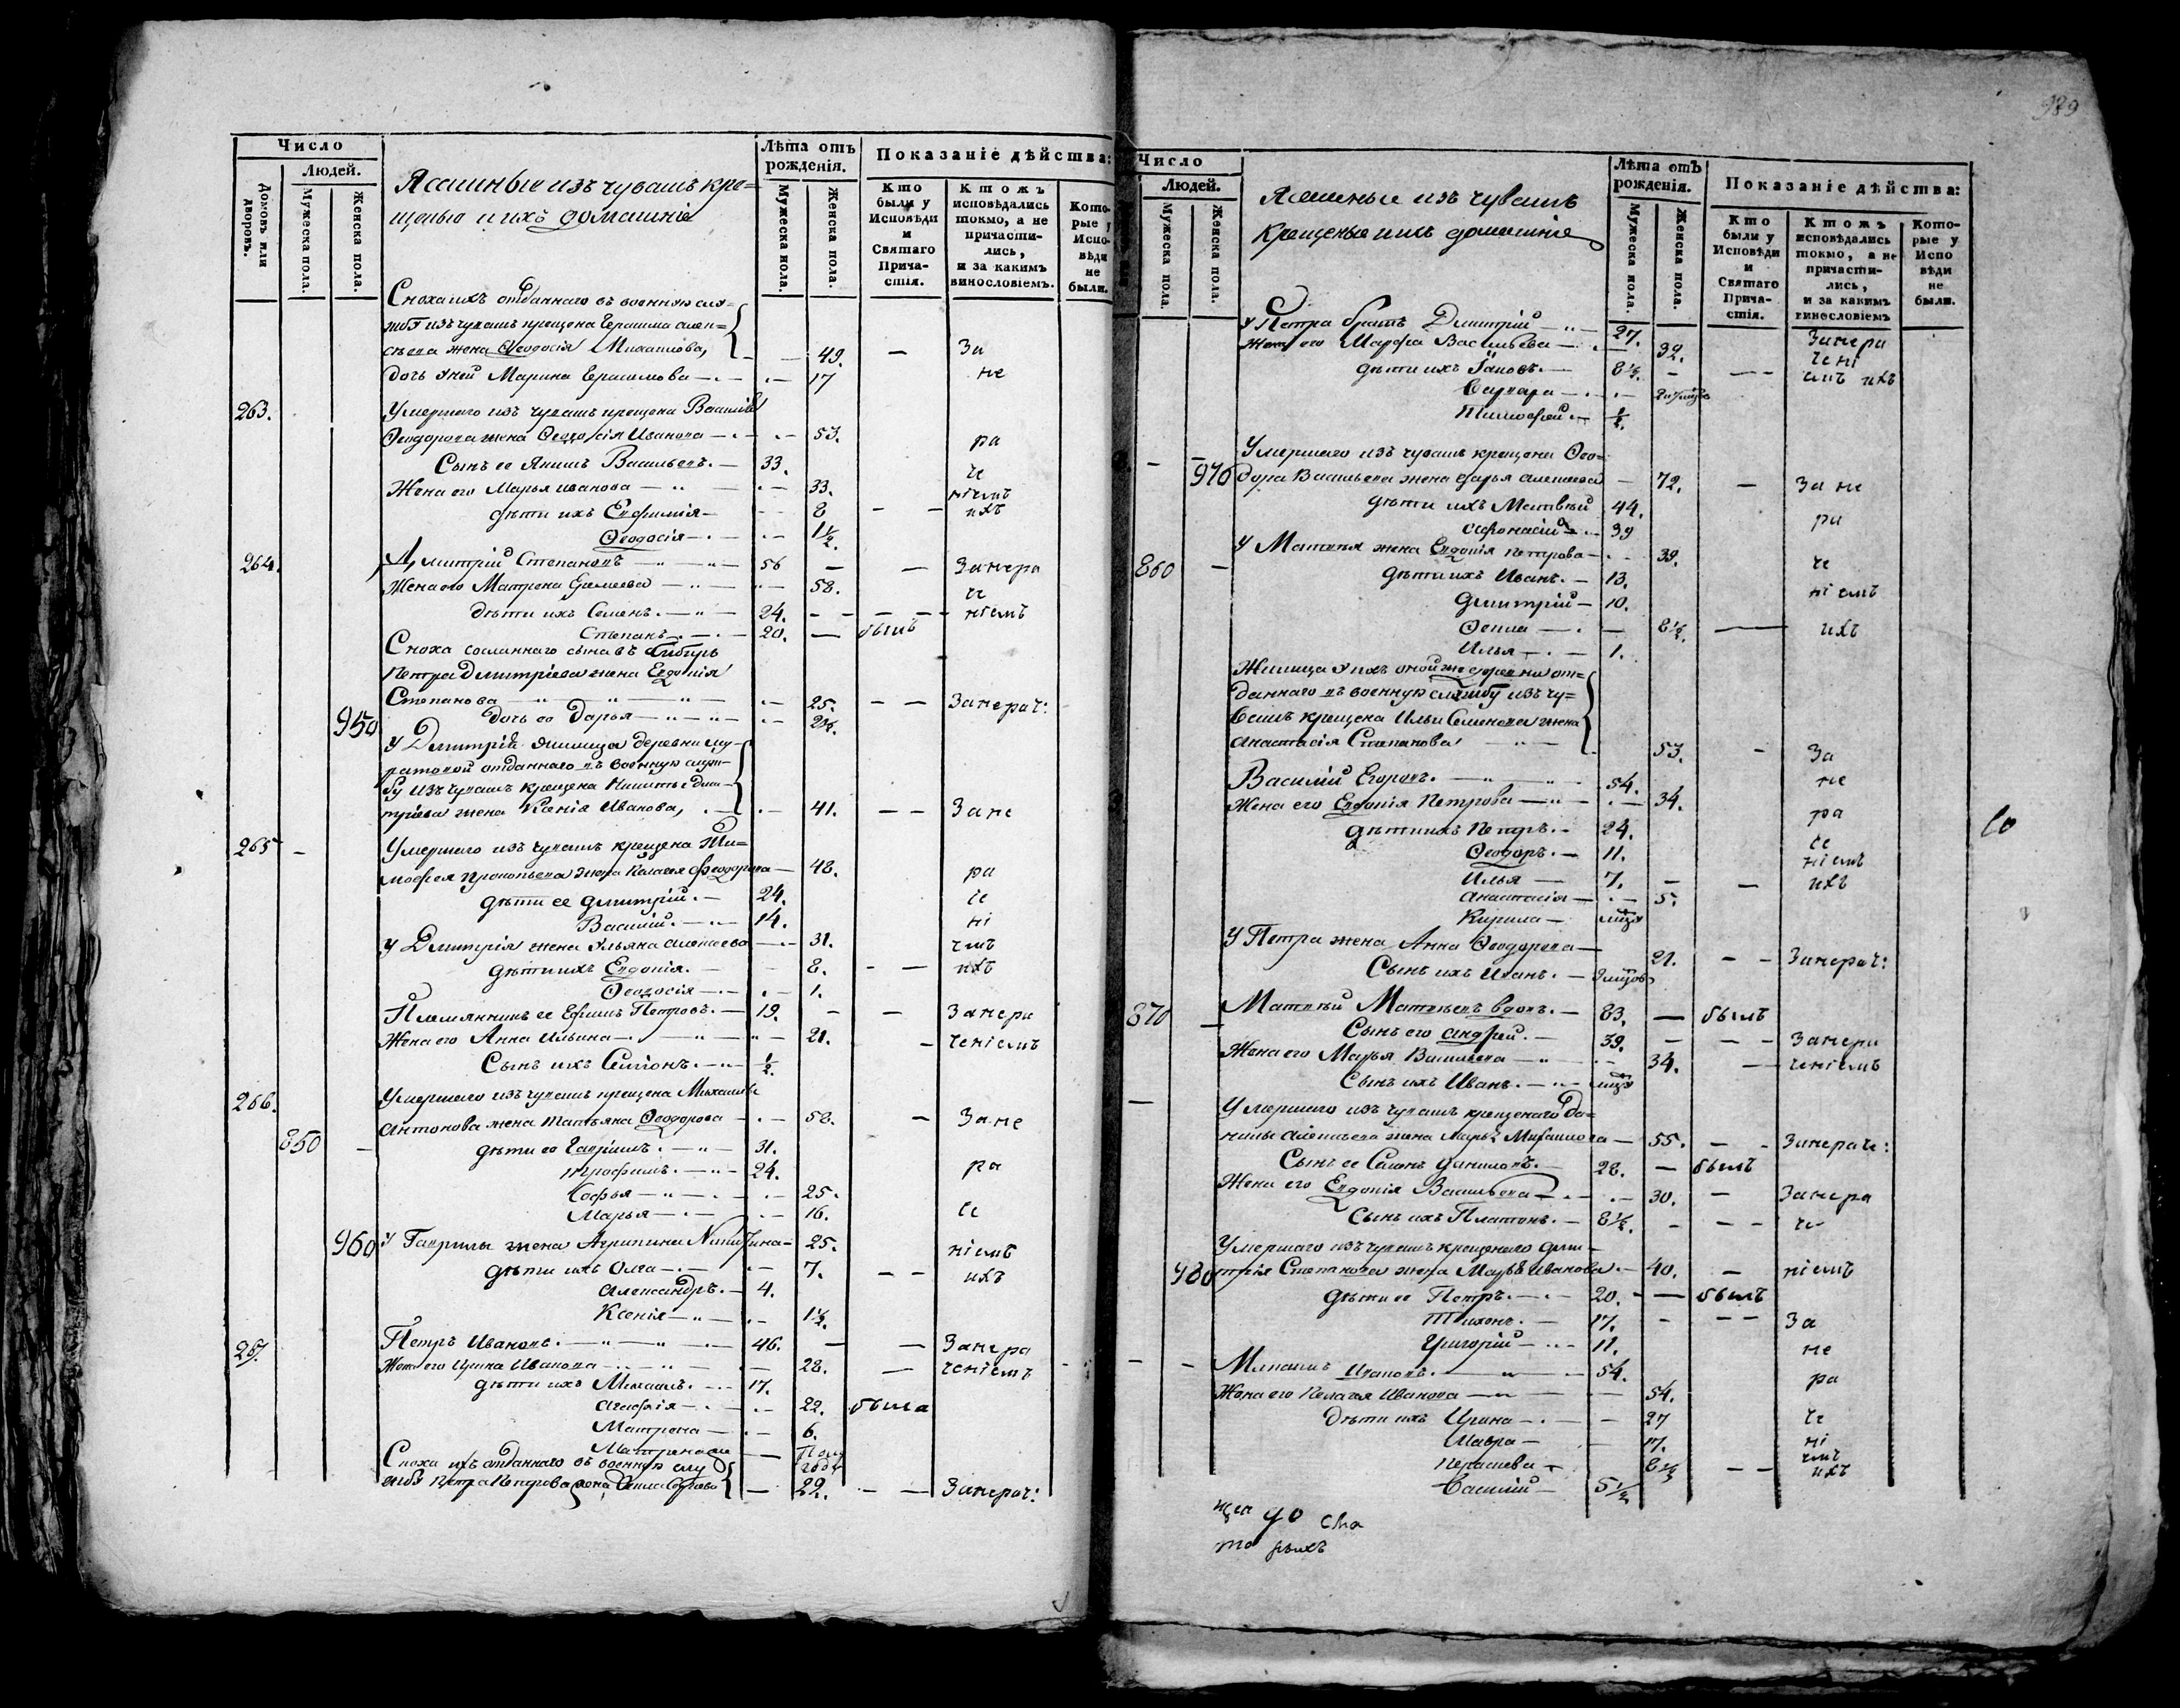 Число
Людей.
Домовъ или дворовъ.
Мужеска пола.
Женска пола.
Ясашные изъ чувашъ кре=
щеные и ихъ домашніе
Лѣта отъ рожденія.
Мужеска пола.
Женска пола.
Показаніе дѣйства:
Кто были у Исповѣди и Святаго Прича-стія.
Ктожъ исповѣдались токмо, а не причасти-лись, и за какимъ винословіемъ.
Кото-рые у Испо-вѣди не были.
Сноха ихъ отданнаго въ военную слу=
жбу изъ чувашъ крещена Герасима Алек=
сѣева жена Ѳеодосія Михаилова, 49. — За
дочь у ней Марина Герасимова 17 не
263. Умершаго изъ чувашъ крещена Василія
Ѳеодорова жена Ѳеодосія Иванова 53. ра
Сынъ ее Якимъ Васильевъ. 33.
че
Жена его Марья Иванова 33. ніемъ
дѣти ихъ Евфимія 8 — — ихъ
Ѳеодосія 1½.
264. Дмитрій Степановъ 56 — — Занера
Жена его Матрена Еремеева 58. че
дѣти ихъ Семенъ. 24. — ніемъ
Степанъ 20. — былъ
Сноха сосланнаго сына въ Сибирь
Петра Дмитріева жена Евдокія
Степанова 25. — — Занерач:
950 дочь ее Дарья
У Дмитрія жилица деревни
отданнаго въ военную служ-
бу изъ чувашъ крещена Никиты Дми-
тріева жена Ксенія Иванова, 41. — — Зане
265 — Умершаго изъ чувашъ крещена Ти=
мофея Прокопьева жена Пелагея Ѳеодорова 48. ра
дѣти ее Дмитрій. 24. че
Василій. 14. ні
У Дмитрія жена Ульяна Алексеева 31. емъ
дѣти ихъ Евдокія. 8. — — ихъ
Ѳеодосія 1.
Племянникъ ее Ефимъ Петровъ. 19. — — Занера
Жена его Анна Ильина 21. — ченіемъ
Сынъ ихъ Семіонъ. ½.
266. Умершаго изъ чувашъ крещена Михаила
Антонова жена Татьяна Ѳеодорова 58. — Зане
850 — дѣти ее Гаврилъ. 31.
Трофимъ. 24. ра
Софья 25.
Марья 16. че
960 У Гаврилы жена Агрипина Никитина 25. ніемъ
дѣти ихъ Олга 7. — — ихъ
Александръ. 4.
Ксенія 1½.
267. Петръ Ивановъ. 46. — — Занера
Жена его Ирина Иванова 28. — ченіемъ
дѣти ихъ Михаилъ. 17.
Агафія 22. была
Матрена 6.
Матрена
Сноха ихъ отданнаго въ военную слу
жбу Петра Петрова жена 22. — — Занерач:
939
Число
Людей.
Мужеска пола.
Женска пола.
Ясашные изъ чувашъ
крещеные и ихъ домашніе
Лѣта отъ рожденія.
Мужеска пола.
Женска пола.
Показаніе дѣйства:
Кто были у Исповѣди и Святаго Прича-стія.
Ктожъ исповѣдались токмо, а не причасти-лись, и за какимъ винословіемъ
Кото-рые у Испо вѣди не были.
У Петра братъ Дмитрій 27. Занера
Жена его Марфа Васильева 32. чені
дѣти ихъ Іаковъ. 8½. — — емъ ихъ
Варвара
Тимофей. ½.
Умершаго изъ чувашъ крещена Ѳео=
970 дора Васильева жена Дарья Алексеева 72. — За не
дѣти ихъ Матвѣй 44.
Афонасій 39 ра
У Матвѣя жена Евдокія Петрова 39. че
860 — дѣти ихъ Иванъ. 13.
Дмитрій 10. ніемъ
Ѳекла 8½. — ихъ
Илья 1.
Жилица у нихъ оной же деревни от=
даннаго въ военную службу изъ чу=
вашъ крещена Ильи Семенова жена
Анастасія Степанова 53. — За
Василій Егоровъ. 54. не
Жена его Евдокія Петрова 34. ра
дѣти ихъ Петръ. 24.
Ѳеодоръ. 11. че
ніемъ
Илья 7. — — ихъ
Анастасія 5.
Кирила
У Петра жена Анна Ѳеодорова 21. — — Занерач:
Сынъ ихъ Иванъ.
870 — Матвѣй Матвѣевъ вдовъ. 83. — былъ
Сынъ его Андрей. 39. — — Занера
Жена его Марья Васильева 34. — ченіемъ
Сынъ ихъ Иванъ.
Умершаго изъ чувашъ крещенаго Да=
нилы Алексеева жена Марья Михаилова 55. — — Занераче:
Сынъ ее Семенъ Даниловъ. 28. — былъ
Жена его Евдокія Васильева 30. — Занера
Сынъ ихъ Платонъ. 8½. — — че
Умершаго изъ чувашъ крещенаго Дми=
980 трія Степанова жена Марья Иванова 40. — ніемъ
дѣти ее Петръ. 20. — былъ
Тихонъ. 17. — — За
Григорій 11. не
Михаилъ Ивановъ. 54. ра
Жена его Пелагея Иванова 54.
дѣти ихъ Ирина 27 че
Мавра 17. ні
емъ
8½ — — ихъ
Василій 5½
10